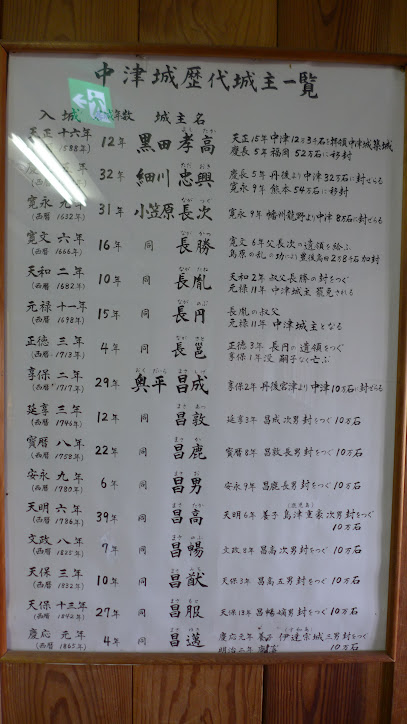 中津城歴代城主一覧
入城 年数 城主名
天正十六年 (西暦1588年) 12年 黒田孝高 よし たか 天正15年中津12万3千石拝領中津城築城 慶長5年福岡52万石に移封
32年 細川忠興 ただ おき 慶長5年丹後より中津32万石に封せらる 寛永9年熊本54万石に移封
寛永九年 (西暦1632年) 31年 小笠原長次 なが つぐ 寛永9年播州龍野より中津8万石に封せらる
寛文六年 (西暦1666年) 16年 同 長勝 なが かつ 寛文6年父長次の遺領を給ふ
天和二年 (西暦1682年) 10年 同 長胤 なが たね 天和2年叔父長勝の封をつぐ 元禄11年中津城主罷免される
元禄十一年 (西暦1698年) 15年 同 長円 なが のぶ 長胤の叔父 元禄11年中津城主となる
正徳三年 (西暦1713年) 4年 同 長邕 なが さと 正徳3年長円の遺領をつぐ 享保1年没嗣子なく亡ぶ
享保二年 (西暦1717年) 29年 奥平昌成 おく だいら まさ しげ 享保2年丹後宮津より中津10万石に封せらる
延享三年 (西暦1746年) 12年 同 昌敦 まさ あつ 延享3年昌成次男封をつぐ10万石
寳暦八年 (西暦1758年) 22年 同 昌鹿 まさ か 寳暦8年昌敦長男封をつぐ10万石
安永九年 (西暦1780年) 6年 同 昌男 まさ お 安永9年昌鹿長男封をつぐ10万石
天明六年 (西暦1786年) 39年 同 昌高 まさ たか 天明6年養子(鹿児島)島津重豪次男封をつぐ 10万石
文政八年 (西暦1825年) 7年 同 昌暢 まさ のぶ 文政8年昌高次男封をつぐ10万石
天保三年 (西暦1832年) 10年 同 昌猷 まさ みち 天保3年昌高五男封をつぐ10万石
天保十三年 (西暦1842年) 27年 同 昌服 まさ もと 天保13年昌暢嫡男封をつぐ10万石
慶応元年 (西暦1865年) 4年 同 昌邁 まさ ゆき 慶応元年養子伊達宗城三男封をつぐ 明治二年 10万石